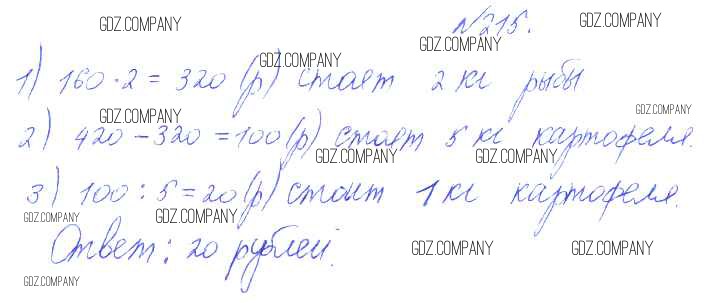 GDZ.COMPANY GDZ.COMPANY
№215.
GDZ.COMPANY
GDZ.COMPANY
1) 160·2=320(р) стоят 2 кг рыбы
GDZ.COMPANY GDZ.COMPANY
2) 420-320=100(р) стоят 5 кг картофеля.
GDZ.COMPANY GDZ.COMPANY
3) 100:5=20(р) стоит 1 кг картофеля.
GDZ.COMPANY GDZ.COMPANY
Ответ: 20 рублей.
GDZ.COMPANY GDZ.COMPANY
GDZ.COMPANY